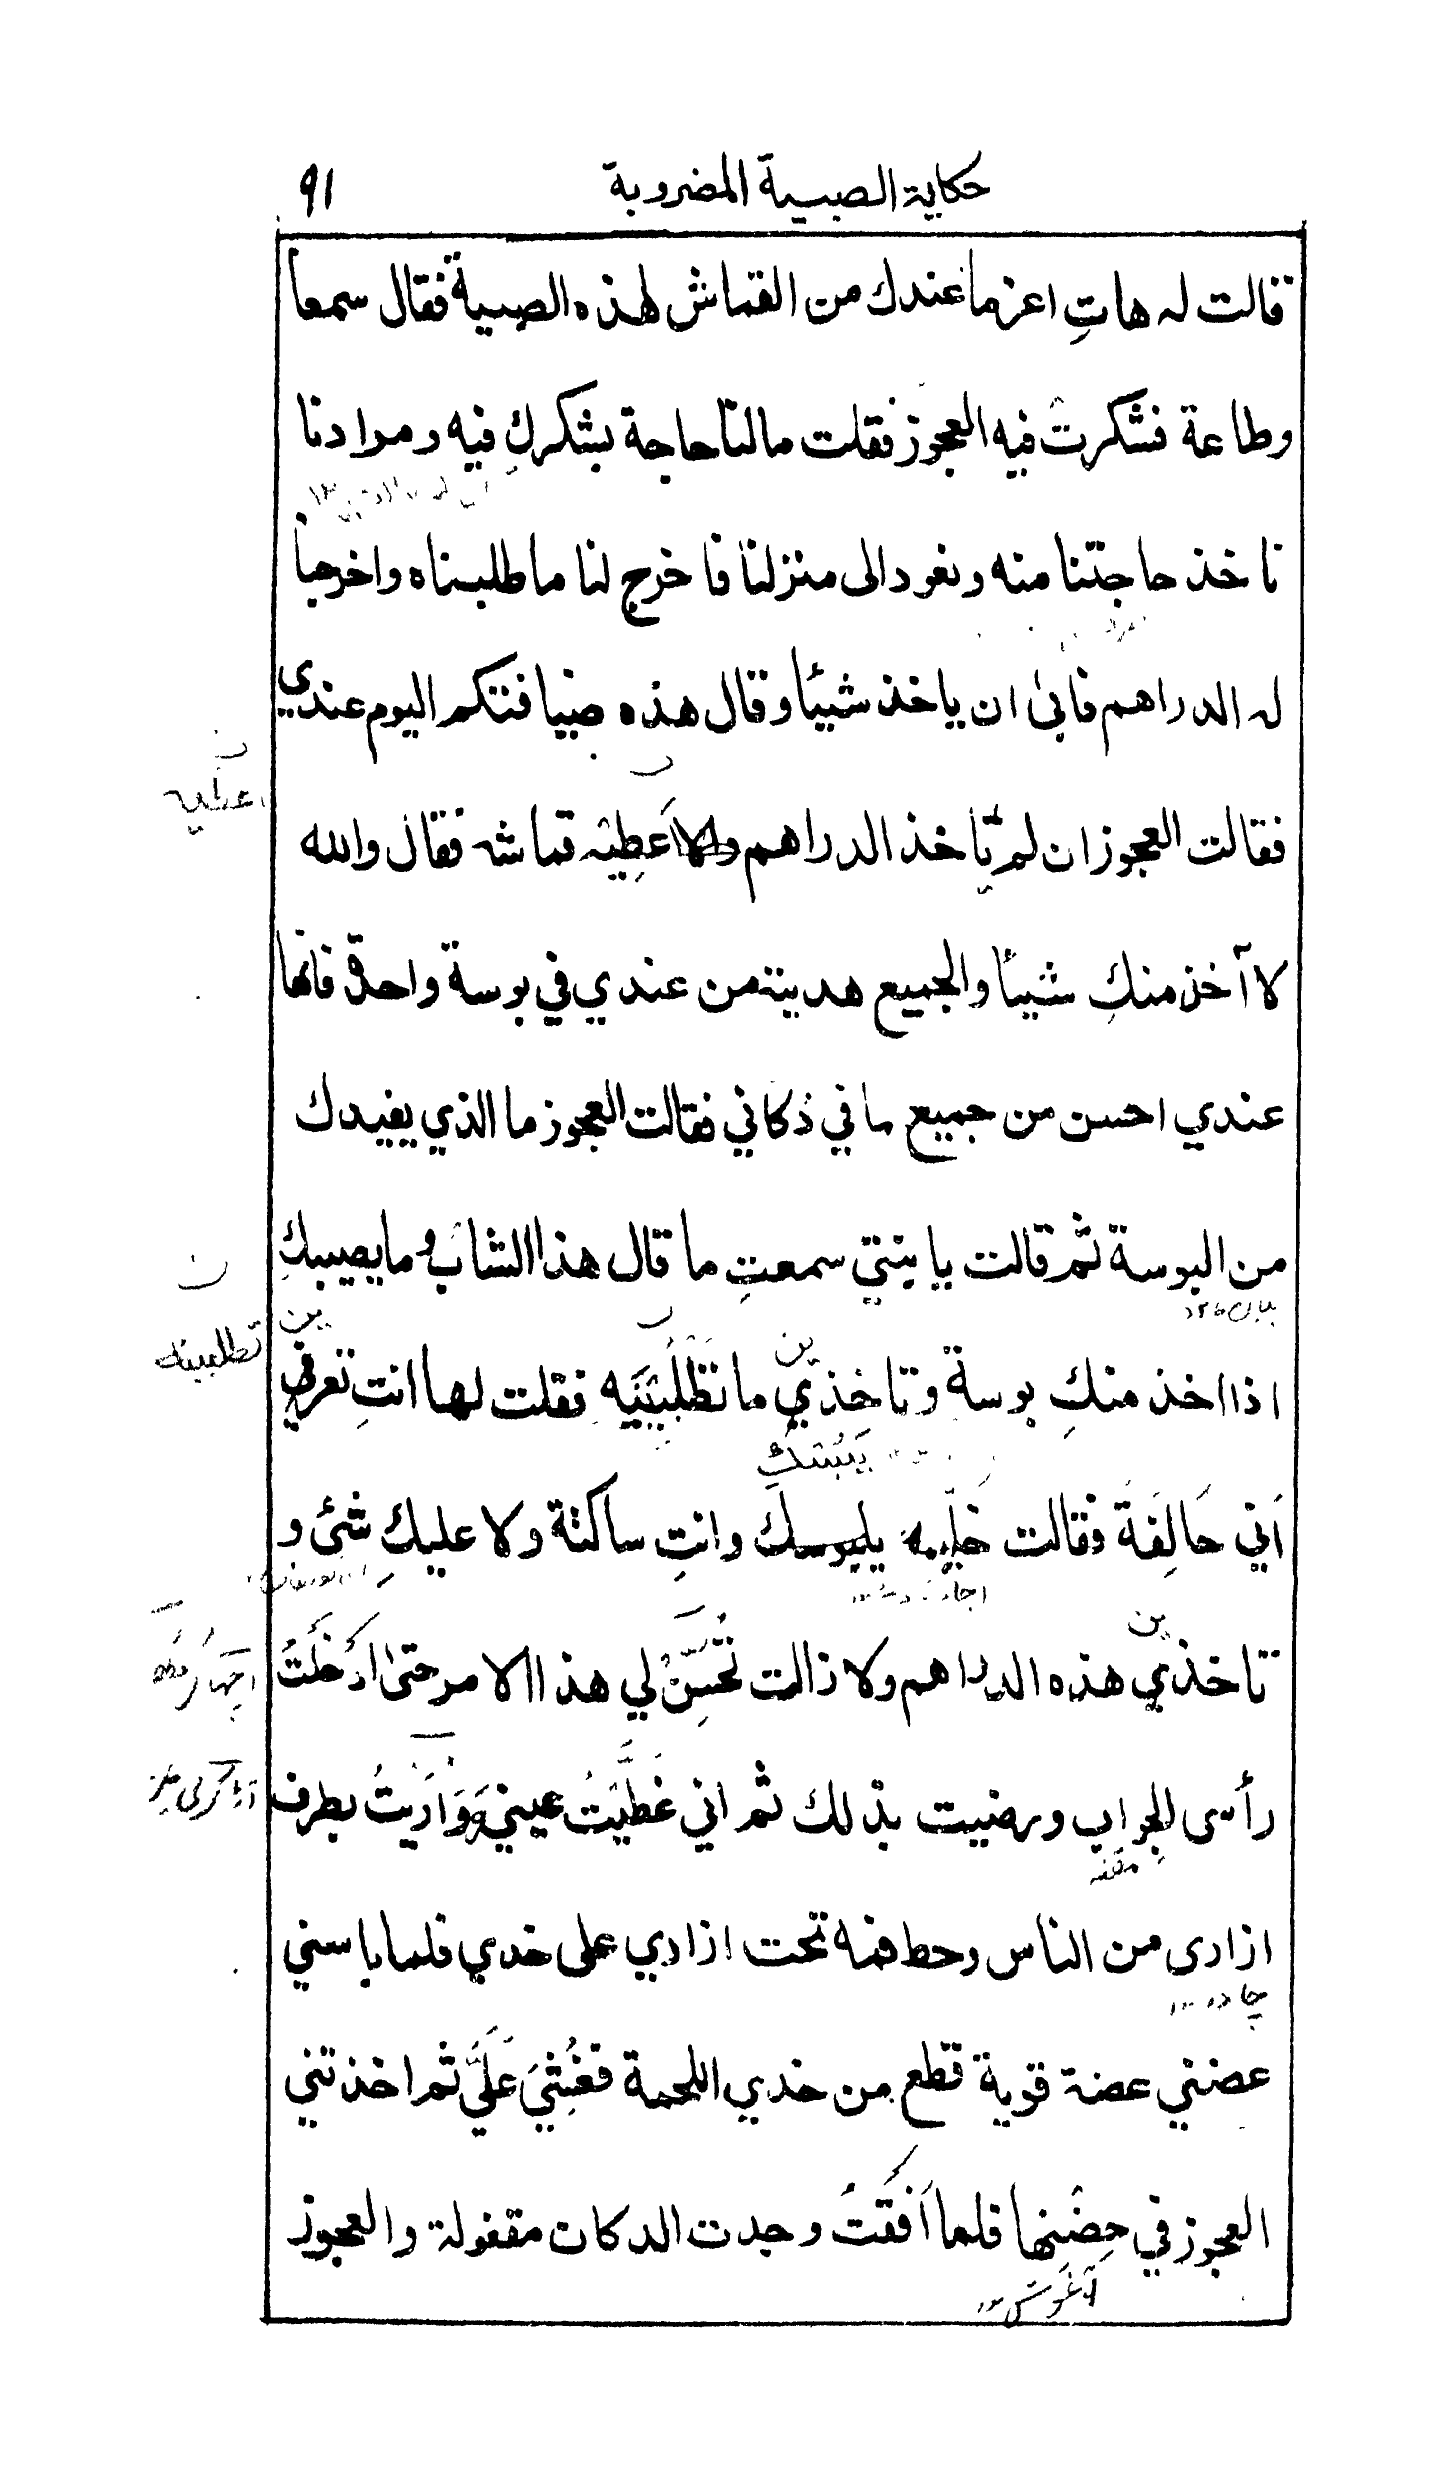 حكاية الصبية المضروبة ٩١
قالت له هاتِ اعز ما عندك من القماش لهذه الصبية فقال سمعا
وطاعة فشكرت فيه العجوز فقلت مالنا حاجة بشكركِ فيه ومرادنا
ناخذ حاجتنا منه ونعود الى منزلنا فاخرج لنا ما طلبناه واخرجنا
له الدراهم فابى ان ياخذ شيئا وقال هذه ضيافتكم اليوم عندي
فقالت العجوز ان لم ياخذ الدراهم والا اَعطِيه قماشه فقال والله
اعطيه
لا آخذ منكِ شيئا والجميع هدية من عندي في بوسة واحدة فانها
عندي احسن من جميع ما في دكاني فقالت العجوز ما الذي يفيدك
من البوسة ثم قالت يا بنتي سمعتِ ما قال هذا الشاب وما يصيبكِ
اذا اخذ منكِ بوسة وتاخذي ما تطلبينه فقلت لها انتِ تعرفي
ين
ين
تطلبينه
اَني حَالِفَة فقالت خليه يبوسك وانتِ ساكتة ولا عليكِ شئ و
تاخذي هذه الدراهم ولا زالت تُحَسِّنُ لي هذا الامر حتى ادخَلَتُ
ين
رأسى الجِراب ورضيت بذلك ثم اني غَطَّيَتُ عيني وَوَارَيتُ بطرف
ازارى من الناس وحط فمه تحت ازاري على خدي فلما باسني
چادر
عضني عضة قوية قطع من خدي اللحمة فغُشِيَ عَلَيَّ ثم اخذتني
العجوز في حِضْنِها فلما اَفَقتُ وجدت الدكان مقفولة والعجوز
آغوش